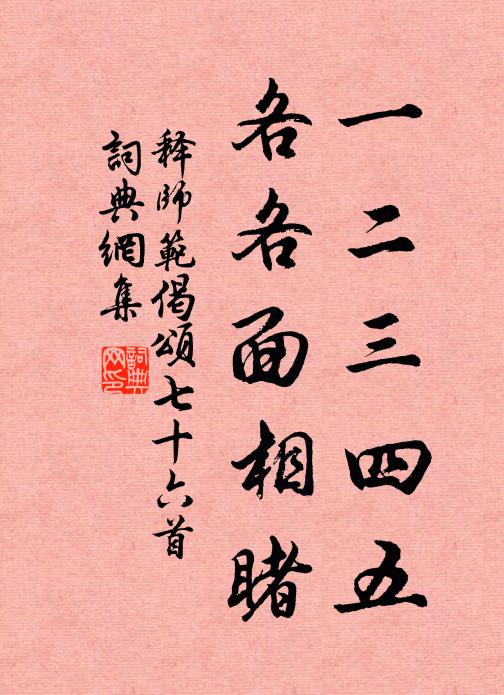 一二三四五
各各面相睹
释師範偈頌七十六首
詞典網集
詞典
网印